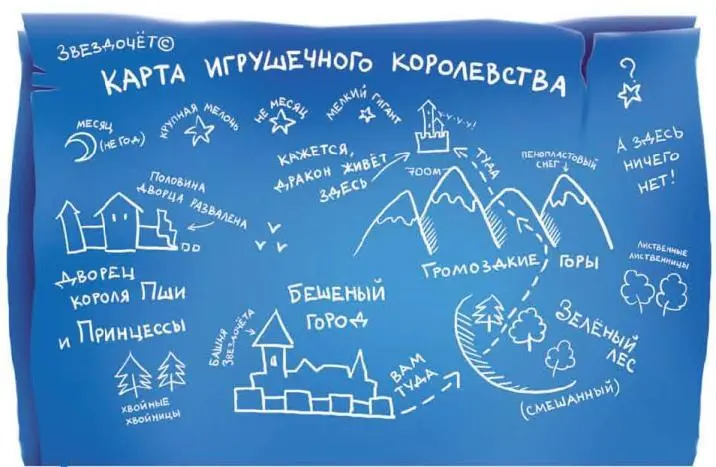 ЗВЕЗДОЧЁТ©
КАРТА ИГРУШЕЧНОГО КОРОЛЕВСТВА
МЕСЯЦ
(НЕ ГОД)
КРУПНАЯ МЕЛОЧЬ
НЕ МЕСЯЦ
МЕЛКИЙ ГИГАНТ
?
А ЗДЕСЬ
НИЧЕГО
НЕТ!
КАЖЕТСЯ,
ДРАКОН ЖИВЁТ
ЗДЕСЬ
У-У-У-У!
700М
ТУДА
ПЕНОПЛАСТОВЫЙ
СНЕГ
ПОЛОВИНА
ДВОРЦА РАЗВАЛЕНА
ГРОМОЗДКИЕ ГОРЫ
ЛИСТВЕННЫЕ
ЛИСТВЕННИЦЫ
ДВОРЕЦ
КОРОЛЯ ПШИ
И ПРИНЦЕССЫ
БЕШЕНЫЙ
ГОРОД
БАШНЯ
ЗВЕЗДОЧЁТА
ВАМ
ТУДА
ЗЕЛЁНЫЙ
ЛЕС
(СМЕШАННЫЙ)
ХВОЙНЫЕ
ХВОЙНИЦЫ